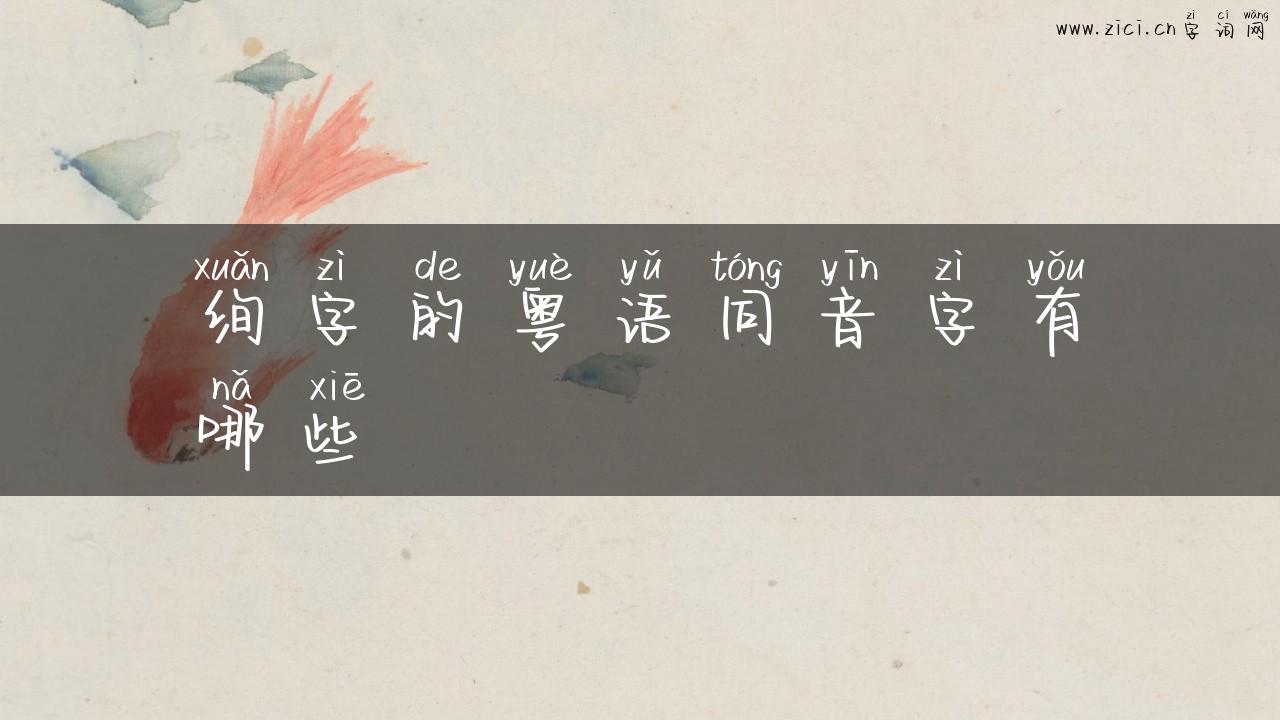 zì cí wǎng
www.zici.cn 字 词 网
xuǎn zì de yuè yǔ tóng yīn zì yǒu
绚 字 的 粤 语 同 音 字 有
nǎ xiē
哪 些